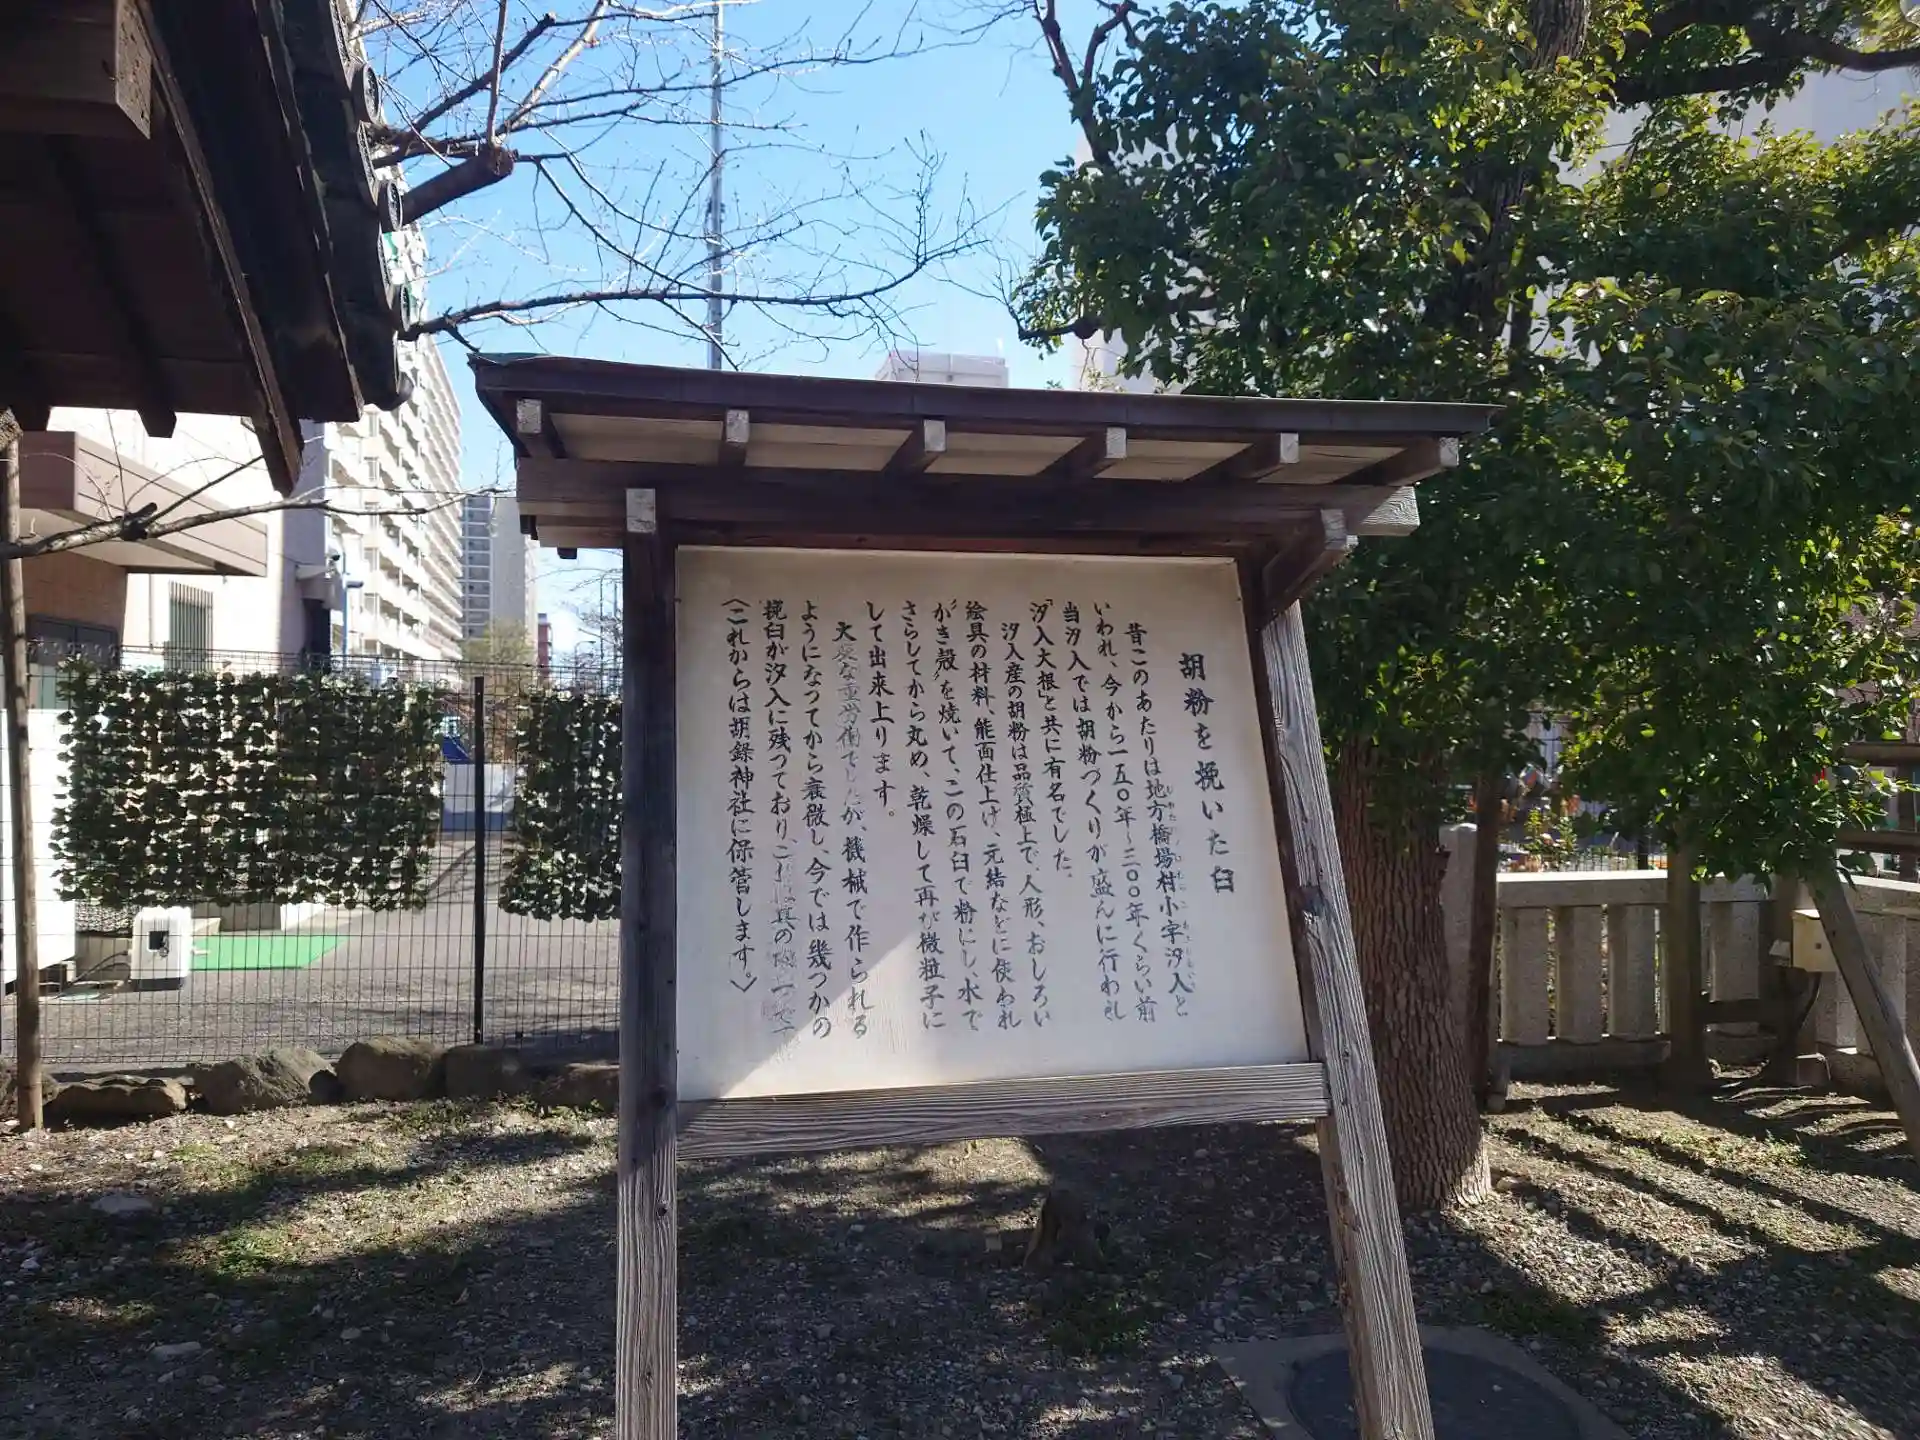 胡粉を挽いた臼
昔このあたりは地方橋場村小字汐入と
いわれ、今から一五〇年～三〇〇年くらい前
当汐入では胡粉づくりが盛んに行われ
「汐入大根」と共に有名でした。
汐入産の胡粉は品質極上で、人形、おしろい
絵具の材料、能面仕上げ、元結などに使われ
"がき殻"を焼いて、この石臼で粉にし、水で
さらしてから丸め、乾燥して再び微粒子に
して出来上ります。
大変な重労働でしたが、機械で作られる
ようになってから衰微し、今では幾つかの
挽臼が汐入に残っており、これは其の
〈これからは胡録神社に保管します。〉